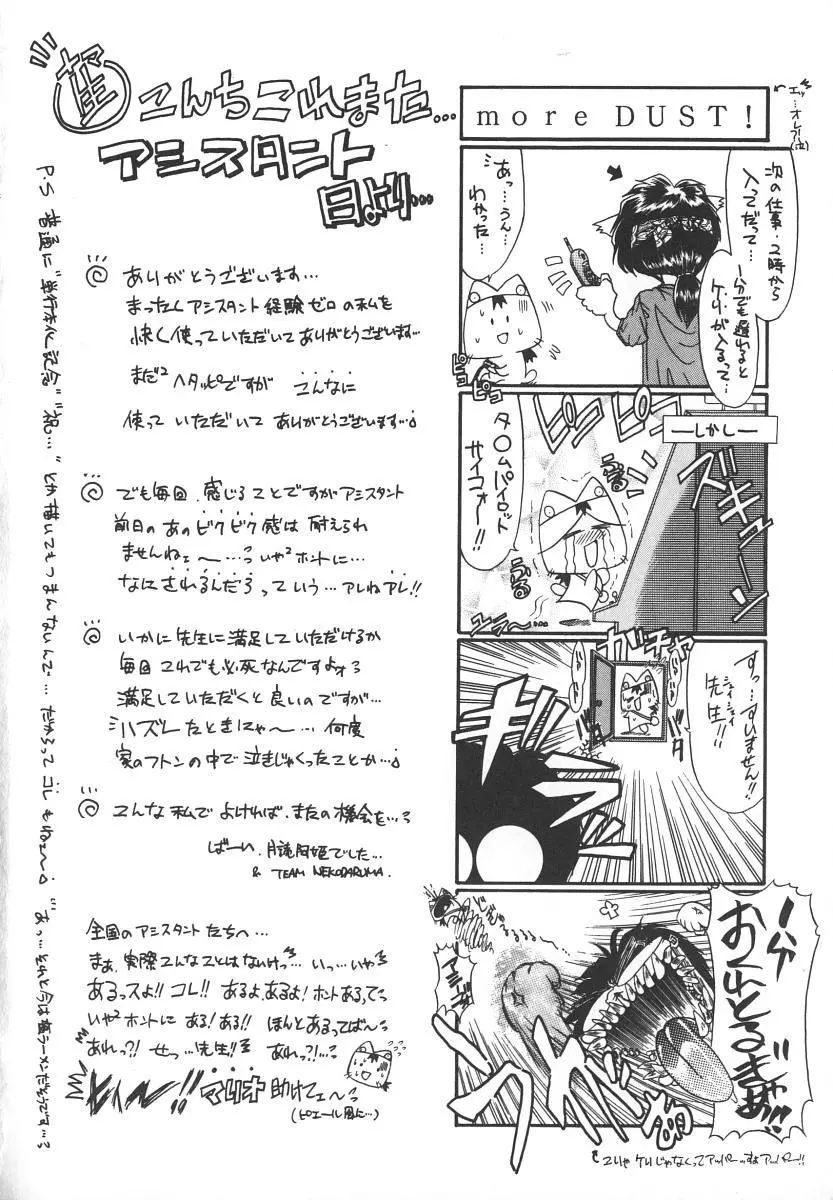 more DUST!
次の仕事、2時から
入ってだって…
1分でも遅れると
ケリが入るって…
あっ…うん…
わかった…
ピコ
ピコ
―しかし―
ズギューン
ピコ
ピコ
タ〇ムパイロット
サイコォー!!
ぶる
ぶる
ガチャ
バタ
バタ
すっ…すいません!!
先生!!
1分
おくれとるぎゃあ!!
こんちこれまた…
アシスタント
日より…
ありがとうございます…
まったくアシスタント経験ゼロの私を
快く使っていただいてありがとうございます…
まだ²ヘタッピですが こんなに
使っていただいて ありがとうございます…
でも毎回、感じることですがアシスタント
前日のあのビクビク感は耐えられ
ませんねェ〜…いや²ホントに…
なにされるんだろっていう…アレねアレ!!
いかに先生に満足していただけるか
毎回これでも必死なんですよォ
満足していただくと良いのですが…
ハズレたときにゃ〜…何度
家のフトンの中で泣きじゃくったことか…
こんな私でよければ、またの機会を…
ばーい、
姫でした…
& TEAM NEKODARUMA.
全国のアシスタントたちへ…
まぁ、実際こんなことはないけっ…いっ…いや
あるっスよ!! コレ!! あるよ、あるよ! ホントあるって
いや²ホントに ある!ある!! ほんとあるってば〜
あれっ?! せっ…先生!! あれっ?!…
助けてェ〜
(ピエール風に…)
P.S 普通に"単行本化記念""祝…"とか描いてもつまんないんで…だからってコレもねェ〜